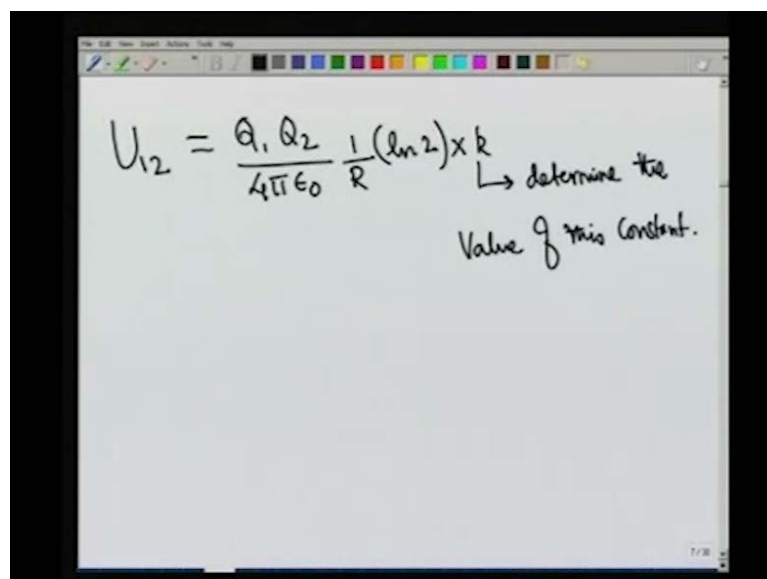 File Edit View Insert Actions Tools Help
U₁₂ = Q₁ Q₂ / 4πε₀ 1/R (ln 2) × k
↳ determine the
Value of this constant.
7/30